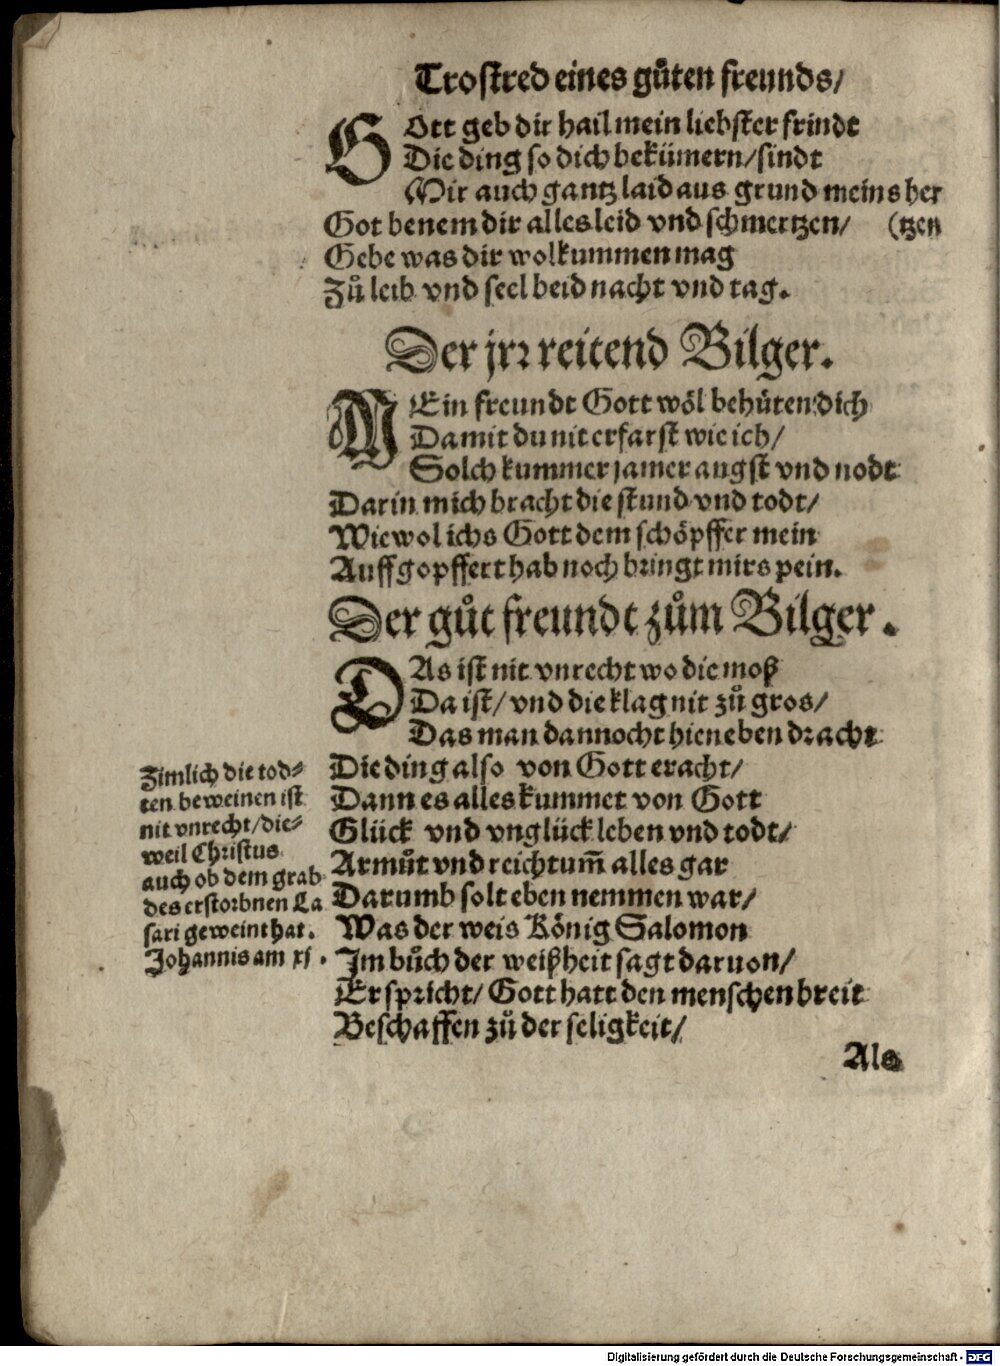 Trostred eines gůten freunds/
GOtt geb dir hail mein liebster frindt
Die ding so dich bekümern/sindt
Mir auch gantz laid aus grund meins her
Got benem dir alles leid vnd schmertzen/ (tzen
Gebe was dir wolkummen mag
Zů leib vnd seel beid nacht vnd tag.
Der jrr reitend Bilger.
MEin freundt Gott wöl behüten dich
Damit du nit erfarst wie ich/
Solch kummer jamer angst vnd nodt
Darin mich bracht die stund vnd todt/
Wiewol ichs Gott dem schöpffer mein
Auffgopffert hab noch bringt mirs pein.
Der gůt freundt zům Bilger.
DAs ist nit vnrecht wo die moß
Da ist/ vnd die klag nit zů gros/
Das man dannocht hieneben dracht
Die ding also von Gott eracht/
Dann es alles kummet von Gott
Glück vnd vnglück leben vnd todt/
Armůt vnd reichtum̄ alles gar
Darumb solt eben nemmen war/
Was der weis König Salomon
Im bůch der weißheit sagt daruon/
Er spricht/ Gott hatt den menschen breit
Beschaffen zů der seligkeit/
Als
Zimlich die tod⸗
ten beweinen ist
nit vnrecht/die⸗
weil Christus
auch ob dem grab
des erstorbnen La
sari geweint hat.
Johannis am xj.
Digitalisierung gefördert durch die Deutsche Forschungsgemeinschaft - DFG